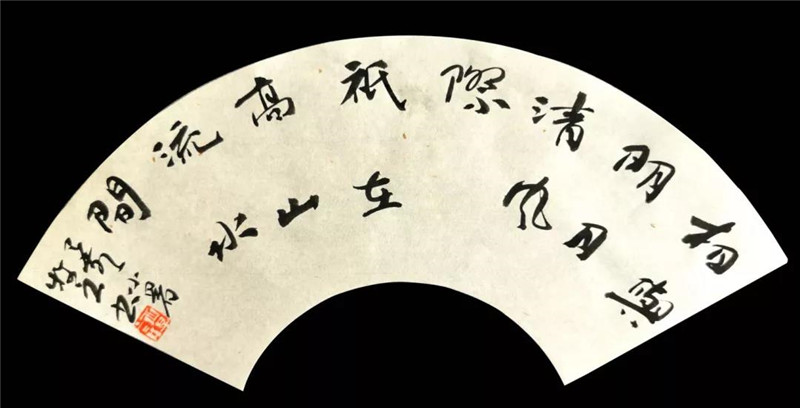 相
明月
清風
際
祇在
高山
流水
間